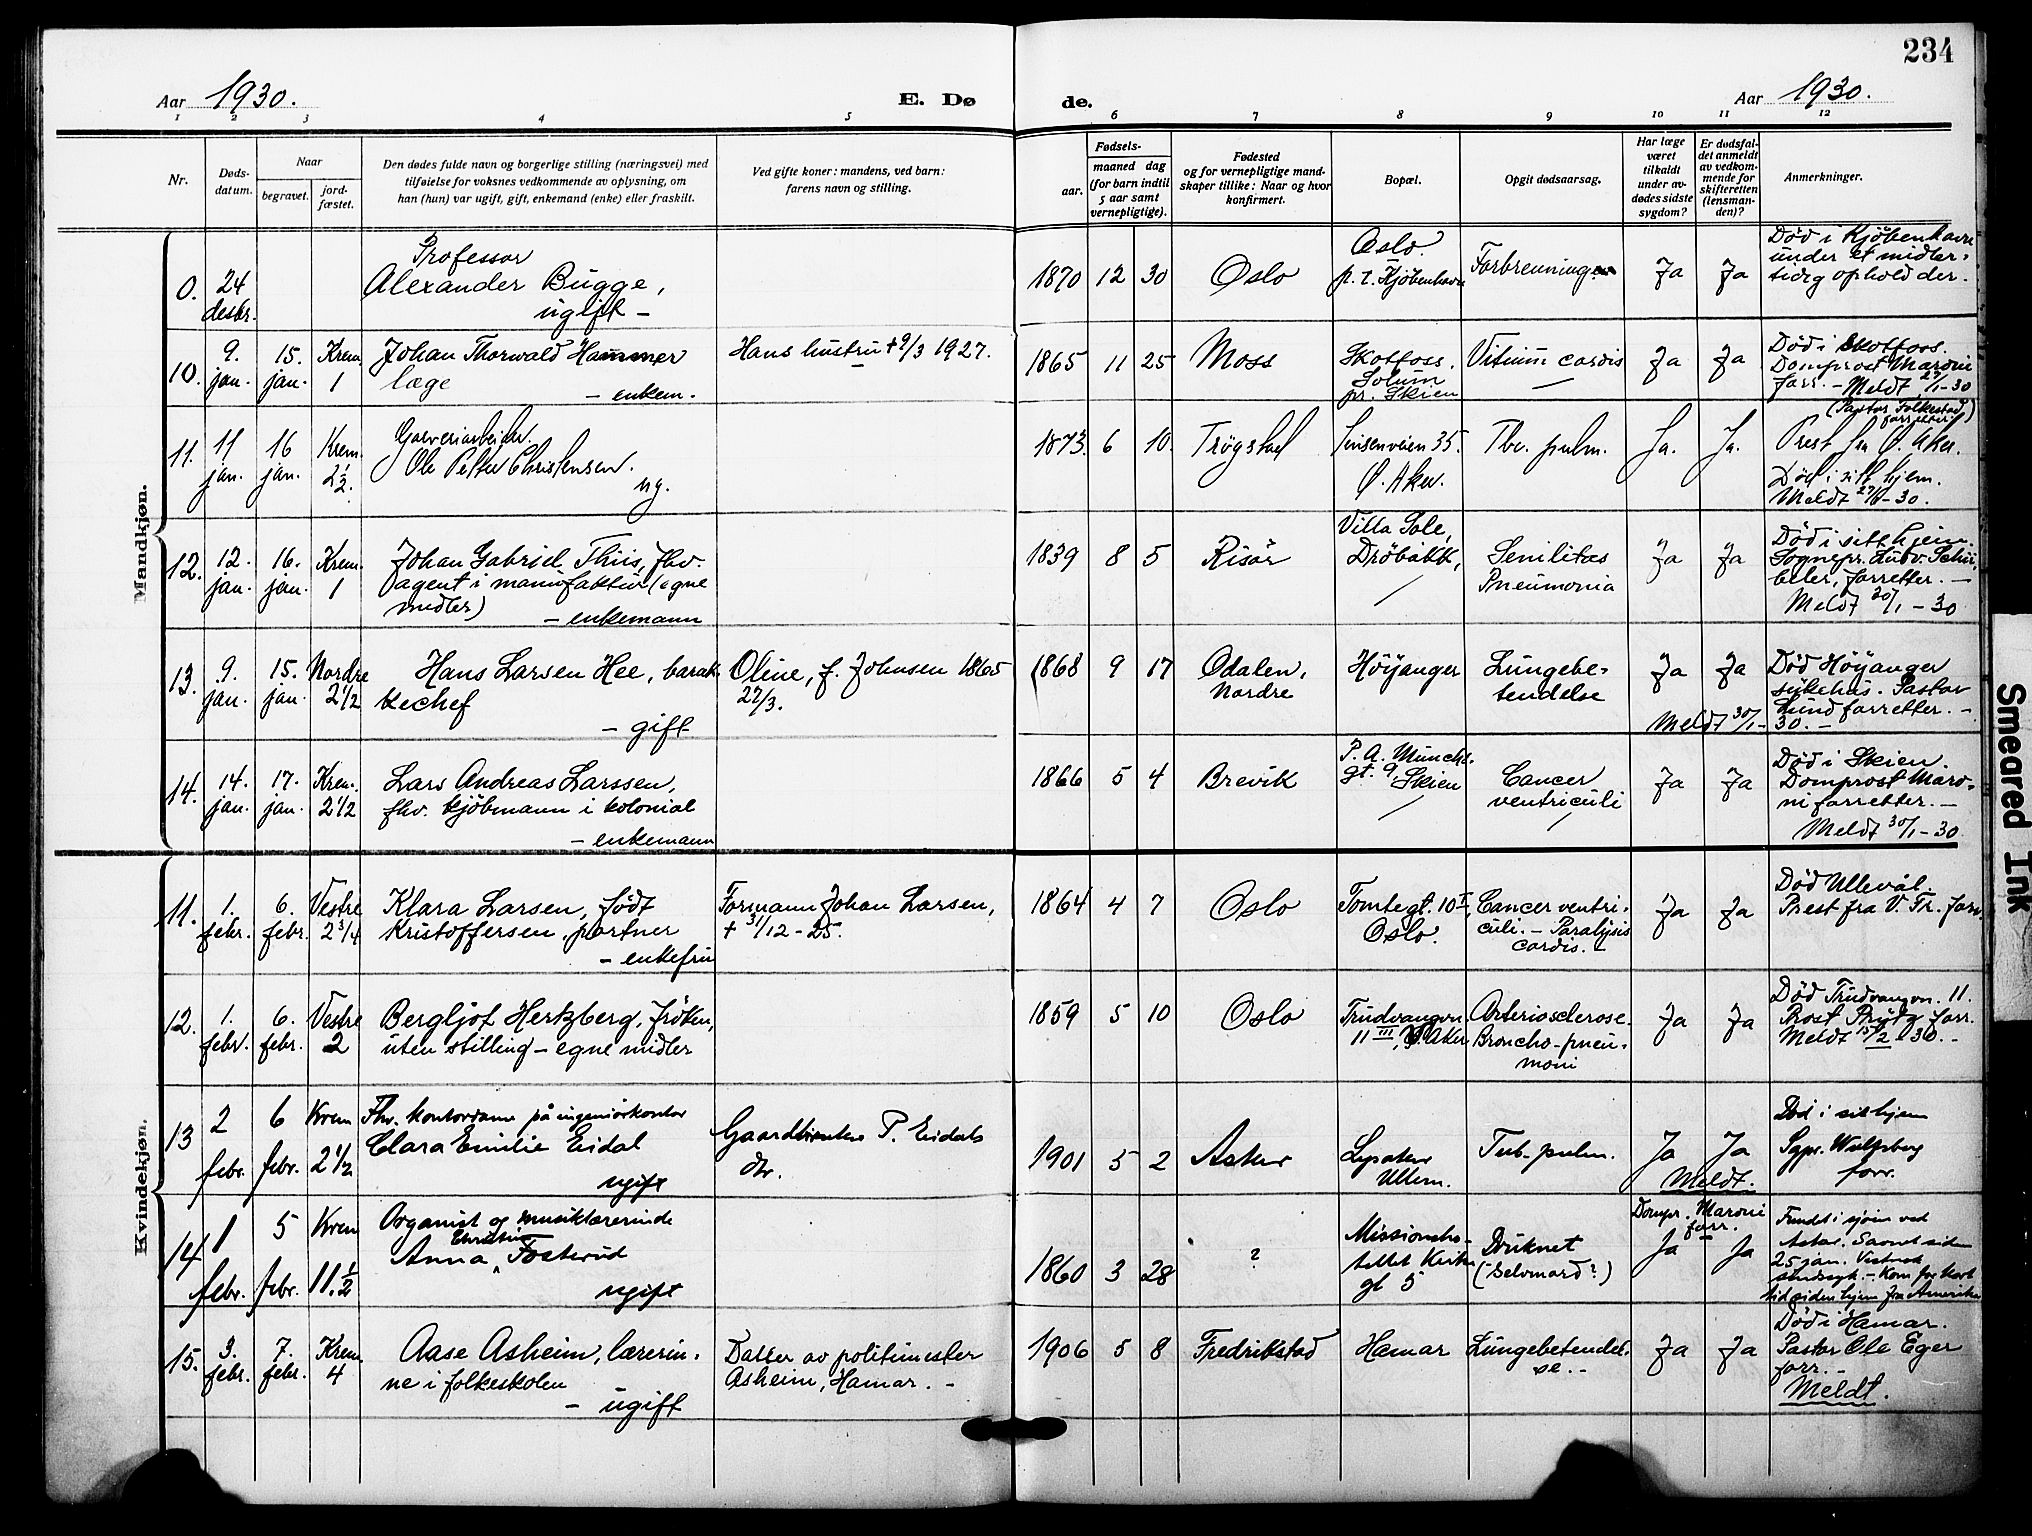 234
Aar 1930.
E. Dø
de.
Aar 1930.
1 2 3 4 5 6 7 8 9 10 11 12
Nr.
Døds-
datum.
Naar
begravet.
jord-
fæstet.
Den dødes fulde navn og borgerlige stilling (næringsvei) med
tilføielse for voksnes vedkommende av oplysning, om
han (hun) var ugift, gift, enkemand (enke) eller fraskilt.
Ved gifte koner: mandens, ved barn:
farens navn og stilling.
Fødsels-
aar.
maaned dag
(for barn indtil
5 aar samt
vernepligtige).
Fødested
og for vernepligtige mand-
skaper tillike: Naar og hvor
konfirmert.
Bopæl.
Opgit dødsaarsag.
Har læge
været
tilkaldt
under av-
dødes sidste
sygdom?
Er dødsfal-
det anmeldt
av vedkom-
mende for
skifteretten
(lensman-
den)?
Anmerkninger.
Mandkjøn.
0.
24
desbr.
Professor
Alexander Bugge,
ugift –
1870 12 30
Oslo
Oslo.
p.t. Kjøbenhavn
Forbrenning
Ja
Ja
Død i Kjøbenhavn
under et midler-
tidig ophold der.
10.
9.
jan.
15.
jan.
Krem.
1
Johan Thorwald Hammer
læge
– enkem.
Hans hustru + 9/3 1927.
1865 11 25
Moss
Skotfoss.
Solum
pr. Skien
Vitium cordis
Ja
Ja
Død i Skotfoss.
Domprost Maroni
forr. – Meldt 27/1-30
11.
11
jan.
16
jan.
Krem.
2 1/2.
Garveriarbeider.
Ole Petter Christensen.
ug.
1873. 6 10.
Trøgstad
Sinsenveien 35.
Ø. Aker.
Tbc. pulm.
Ja.
Ja.
(Pastor Folkestad
forrettet)
Prest fra Ø. Aker.
Død i sitt hjem.
Meldt 27/1-30.
12.
12.
jan.
16.
jan.
Krem.
1
Johan Gabriel Thiis, fhv.
agent i manufaktur (egne
midler)
– enkemann
1839 8 5
Risør
Villa Sole,
Drøbakk,
Senilitas
Pneumonia
Ja
Ja
Død i sitt hjem.
Sognepr. Ludv. Schü-
beler, forretter. –
Meldt 30/1-30
13.
9.
jan.
15.
jan.
Nordre
2 1/2
Hans Larsen Hee, barak-
kechef
– gift
Oline, f. Johnsen 1865
27/3.
1868 9 17
Odalen,
Nordre
Høyanger
Lungebe-
tendelse
Ja
Ja
Død Høyanger
sykehus. Pastor
Lund forretter. –
Meldt 30/1-30. –
14.
14.
jan.
17.
jan.
Krem.
2 1/2
Lars Andreas Larssen,
fhv. kjøbmann i kolonial
– enkemann
1866 5 4
Brevik
P. A. Munchs
gt. 9 Skien
Cancer
ventriculi
Ja
Ja
Død i Skien.
Domprost Maro-
ni forretter. –
Meldt 30/1-30
Kvindekjøn.
11.
1.
febr.
6.
febr.
Vestre
2 3/4
Klara Larsen, født
Kristoffersen, portner
– enkefru
Formann Johan Larsen,
+ 31/12 - 25.
1864 4 7
Oslo
Tomtegt. 10 I,
Oslo.
Cancer ventri-
culi. – Paralysis
cordis. –
Ja
Ja
Død Ullevål.
Prest fra V. Fr. forr.
12.
1.
febr.
6.
febr.
Vestre
2
Bergljot Hertzberg, frøken,
uten stilling – egne midler
1859 5 10
Oslo
Trudvangvn.
11 III, V. Aker
Arteriosclerose.
Broncho-pneu-
moni
Ja
Ja
Død Trudvangvn. 11.
Prost Prytz forr.
Meldt 15/2 1930. –
13
2
febr.
6
febr.
Krem
2 1/2
Fhv. kontordame på ingeniørkontor
Clara Emilie Eidal
ugift
P. Eidals
dtr.
1901 5 2
Asker
Lysaker
Ullern.
Tub. pulm.
Ja
Ja
Meldt.
Død i sit hjem
Sgpr. Wulfsberg
forr.
14
1
febr.
5
febr.
Krem
11. 1/2
Organist og musiklærerinde
Anna Christine Fosterud
ugift
1860 3 28
?
Missionsho-
tellet Kirke
gt 5
Druknet
(Selvmord?)
Dompr. Maroni
forr.
Ja
Ja
Fundet i sjøen ved
Savnet siden
25 jan.
sindssyk. – Kom for kort
tid siden hjem fra Amerika
15.
3.
febr.
7.
febr.
Krem.
4
Aase Asheim, lærerin-
ne i folkeskolen
– ugift
Datter av politimester
Asheim, Hamar. –
1906 5 8
Fredrikstad
Hamar
Lungebetendel-
se. –
Ja
Ja
Død i Hamar.
Pastor Ole Eger
forr. –
Meldt.
Smeared Ink